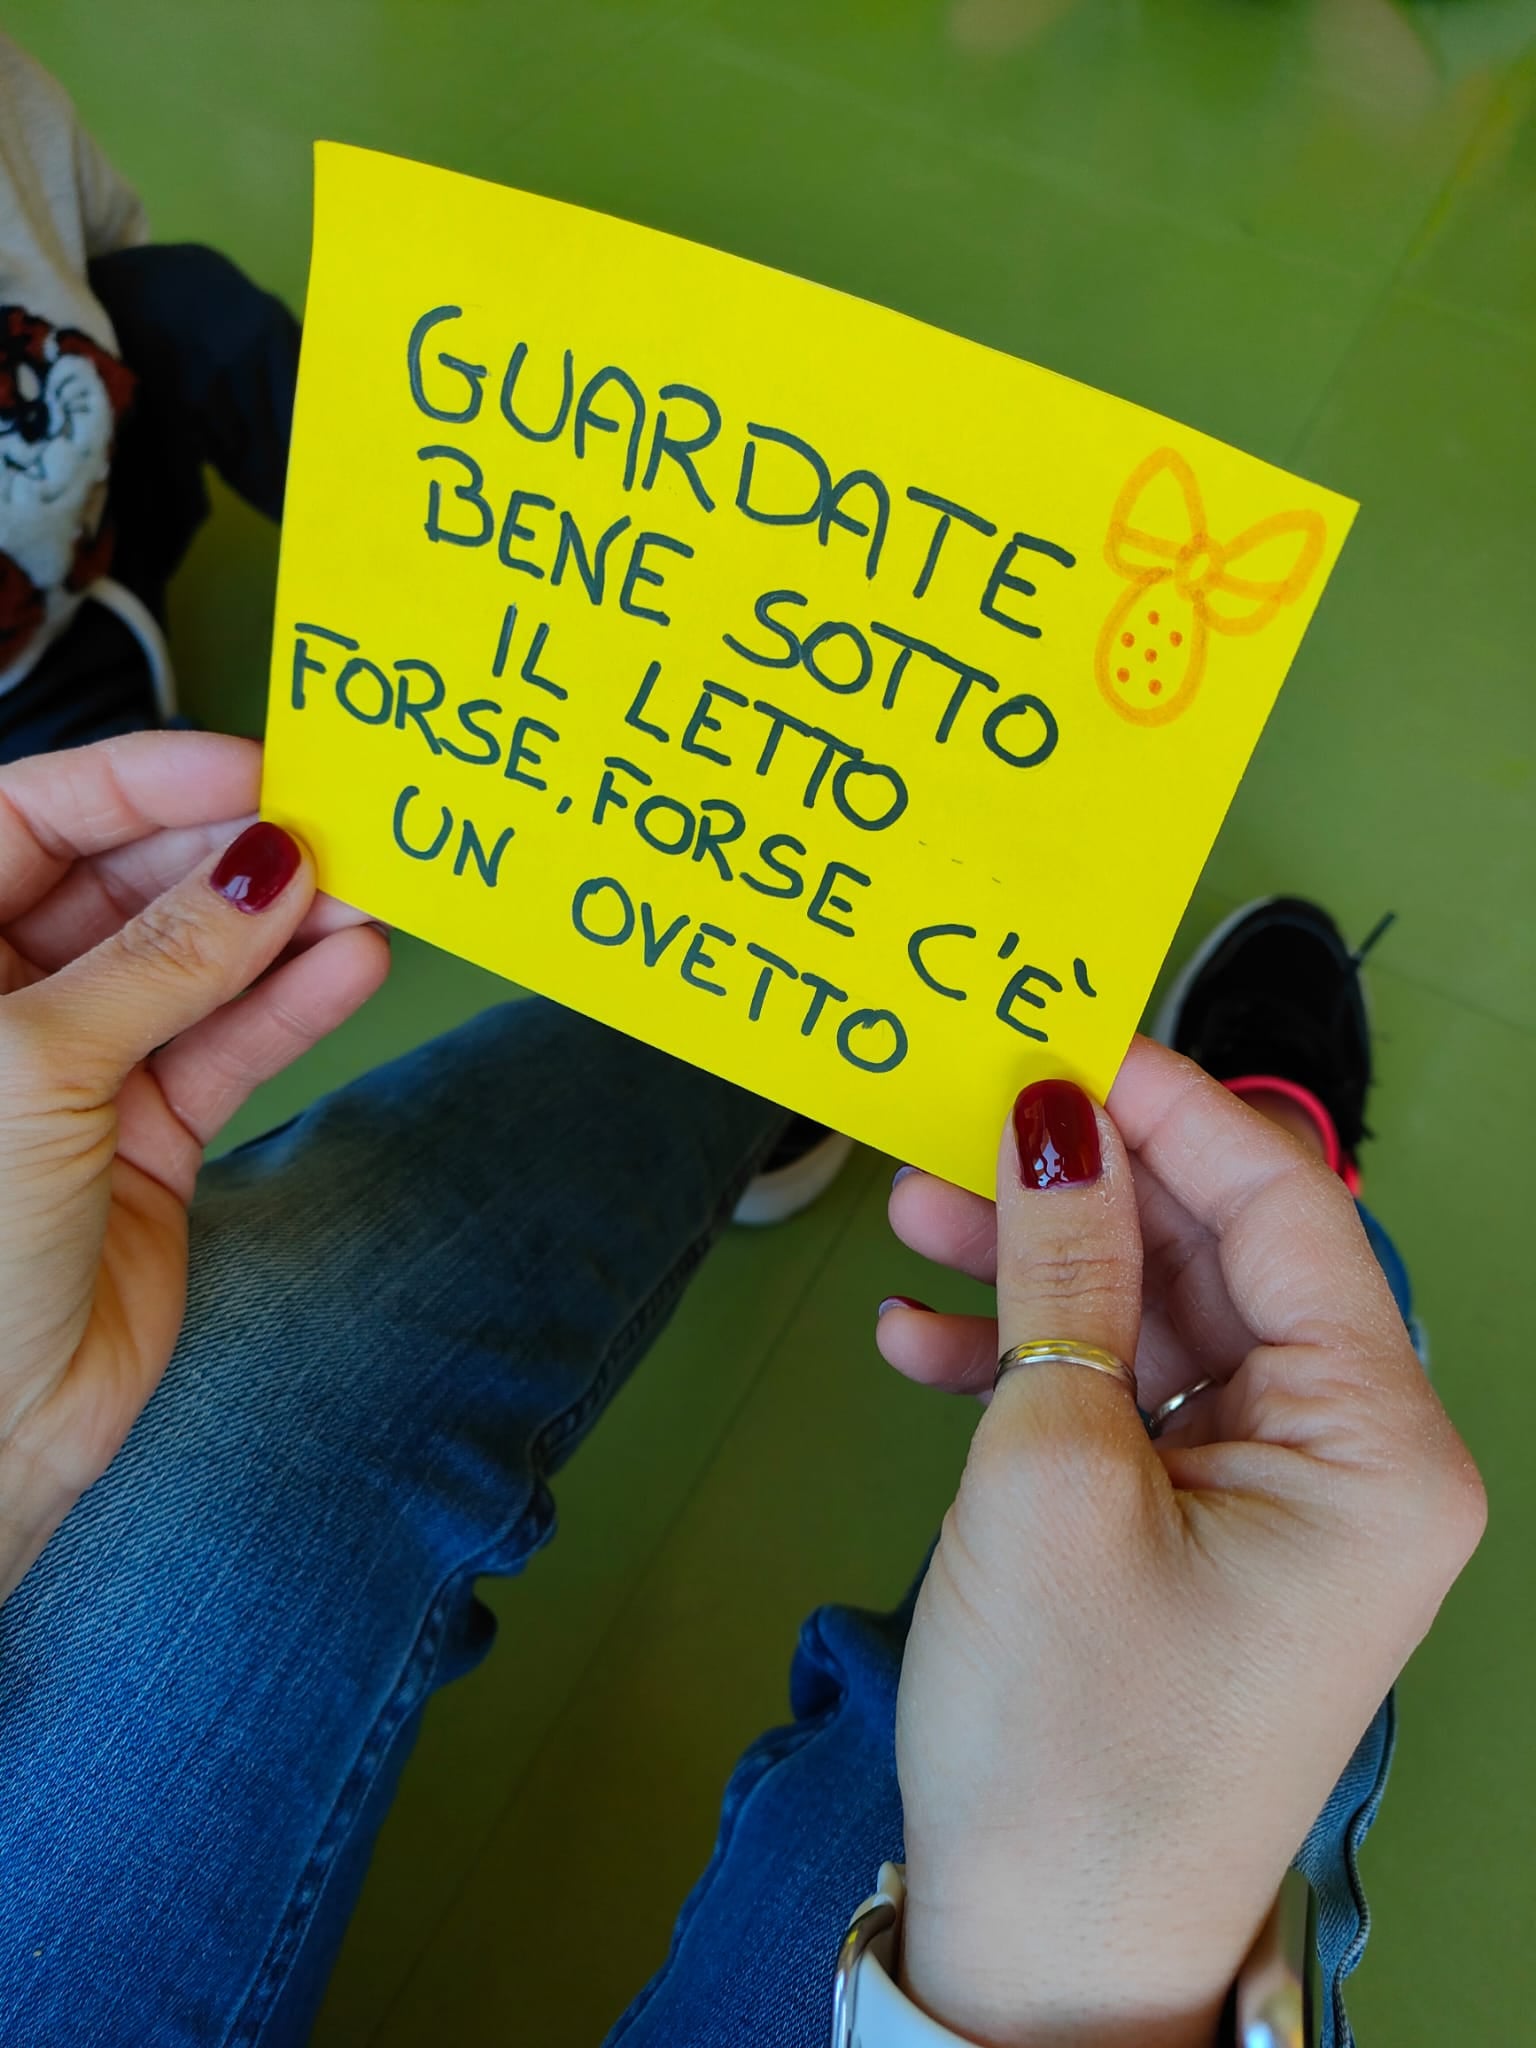 GUARDATE
BENE SOTTO
IL LETTO
FORSE, FORSE C'È
UN OVETTO